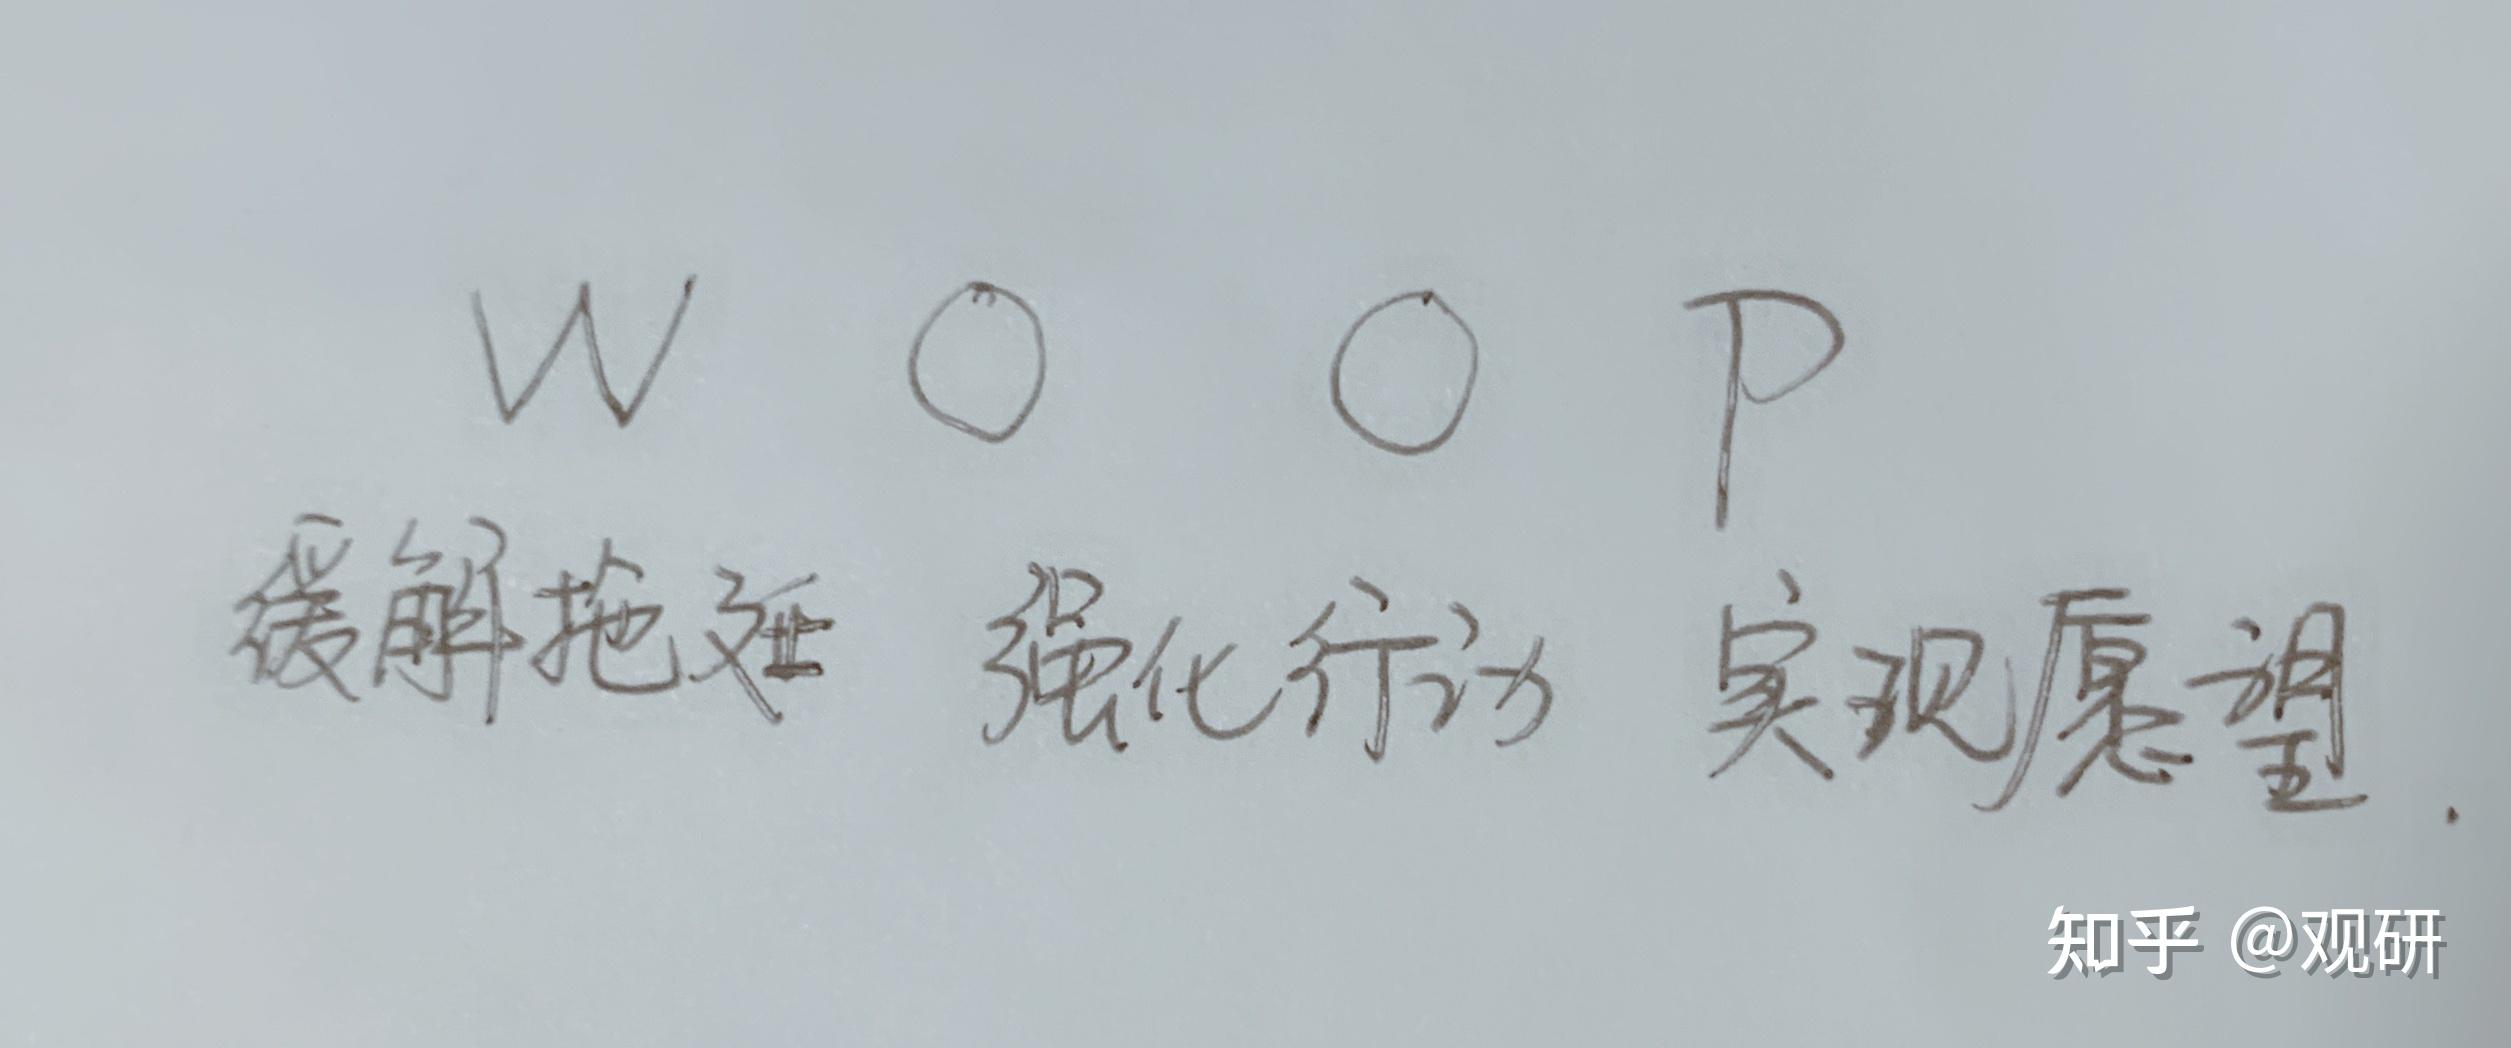 W O O P
缓解拖延 强化行动 实现愿望.
知乎 @观研